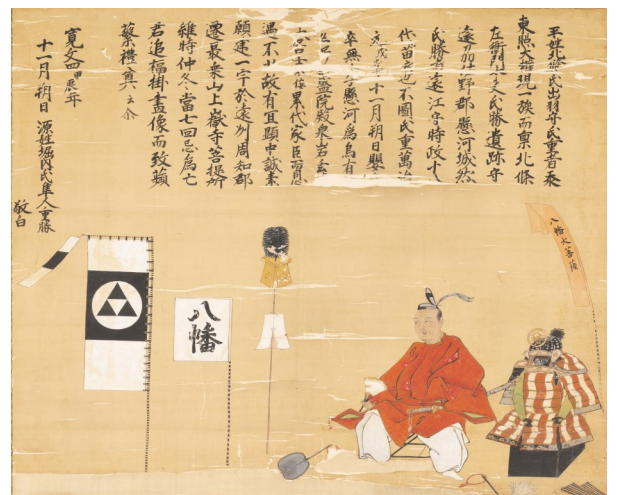 平姓北條氏出羽守氏重者奉
東照大權現一族而稟北條
左衛門大夫氏勝遺跡守
遠刕野郡懸河城然
氏勝者遠江守時政十
代苗裔也不圖氏重萬治
元戊戌十一月朔日嬰
卒無懸河為烏有
盛院殿泉岩玄
累代家臣而思
遇不少故有冝顯中誠素
願建一宇於遠刕周知郡
還最乗山上嶽寺菩提所
維時仲冬當七回忌為亡
君追福掛畫像而致蘋
蘩禮奠云介
寛文四甲辰年
十一月朔日 源姓堀内氏隼人重勝
敬白
八幡大菩薩
八幡